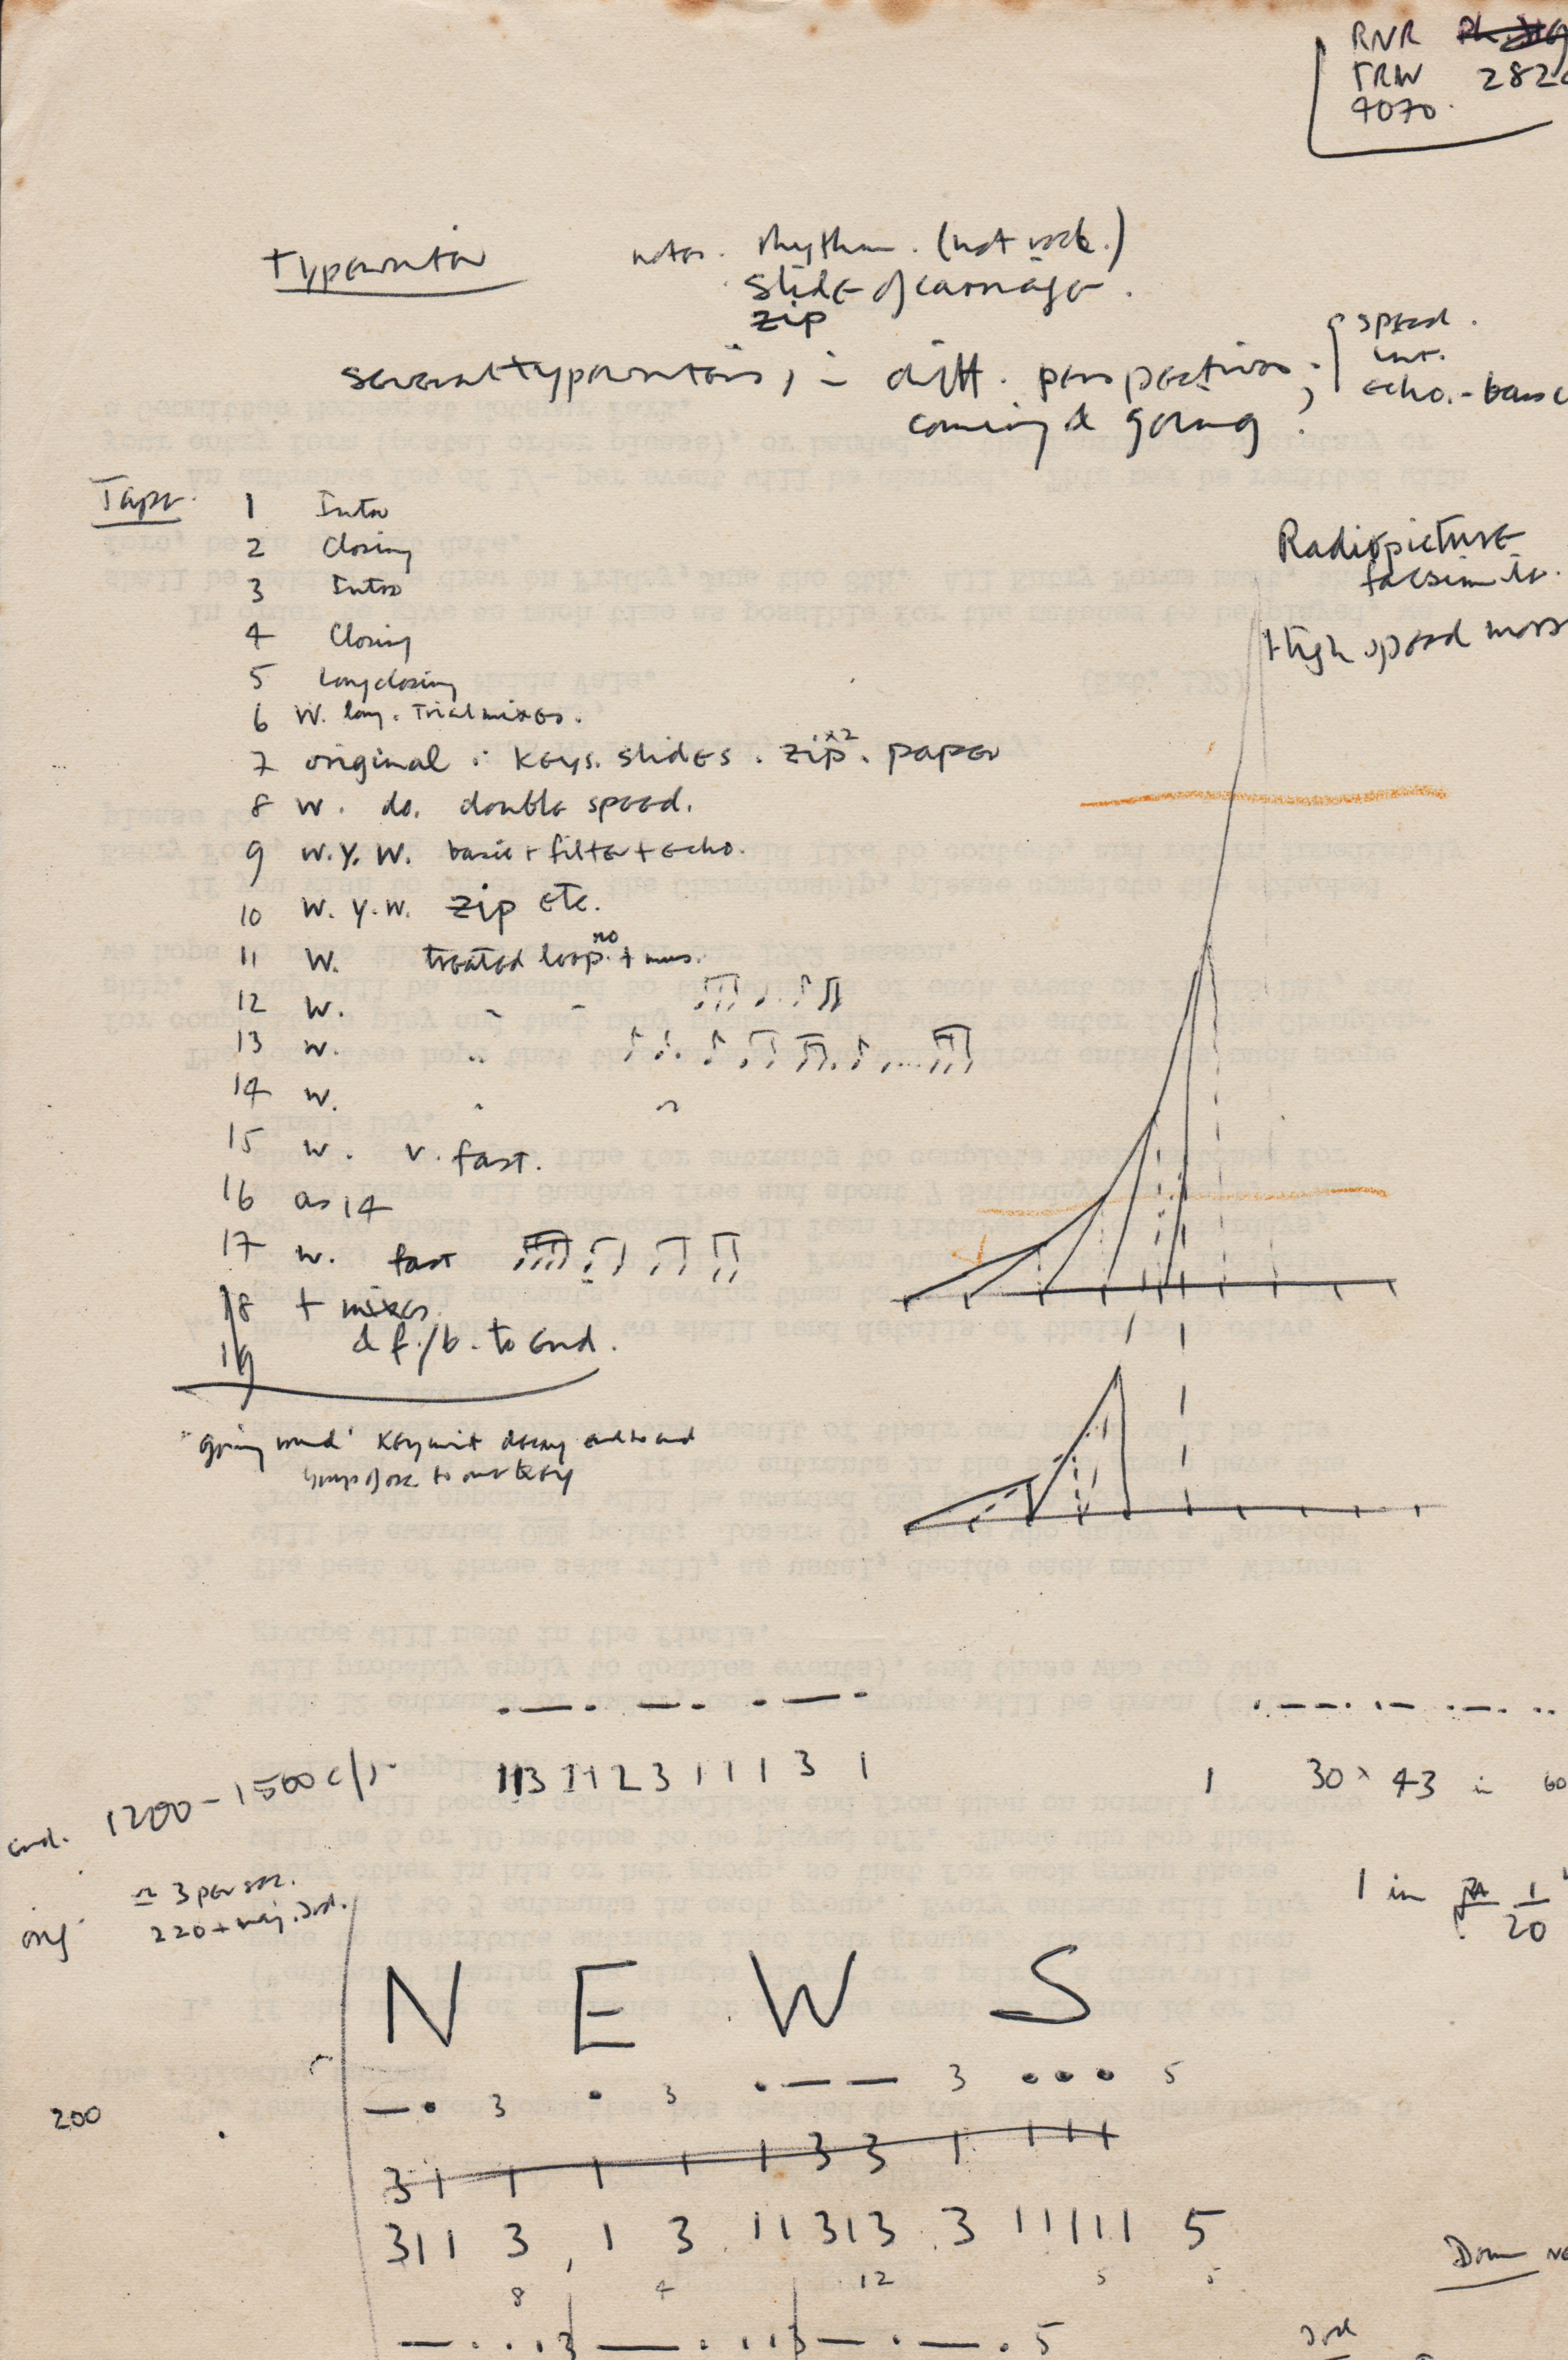 RNR
TRW 282
4070.
Typewriter notes. rhythm. (not
slide of carriage.
zip
several typewriters, in diff. perspectives;
coming & going
speed.
int.
echo. - basic
Tape. 1 Intro
2 Closing
3 Intro
4 Closing
5 Long closing
6 W. long. Trial mixes.
7 original: keys. slides. zip x2. paper
8 W. do. double speed.
9 W.Y.W. basic + filter + echo.
10 W.Y.W. zip etc.
11 W. treated loop. no + mus.
12 W. " "
13 W. "
14 W. " "
15 W. v. fast.
16 as 14
17 W. fast
18 + mixes
19 & f./b. to end.
Radiopicture
facsimile.
High speed mors
"going round" key unit decay end to end
1 1 3 1 1 2 3 1 1 1 3 1
1 30 x 43 in 60
1200 - 1500 c/s
≃ 3 per sec.
220 + maj. 3rd.
orig
1 in 1/20
N E W S
— • 3 • 3 • — — 3 • • • 5
200
3 1 1 1 1 1 3 3 1 1 1 1
3 1 1 3, 1 3 1 1 3 1 3 3 1 1 1 1 1 5
8 4 12 5 5
3rd